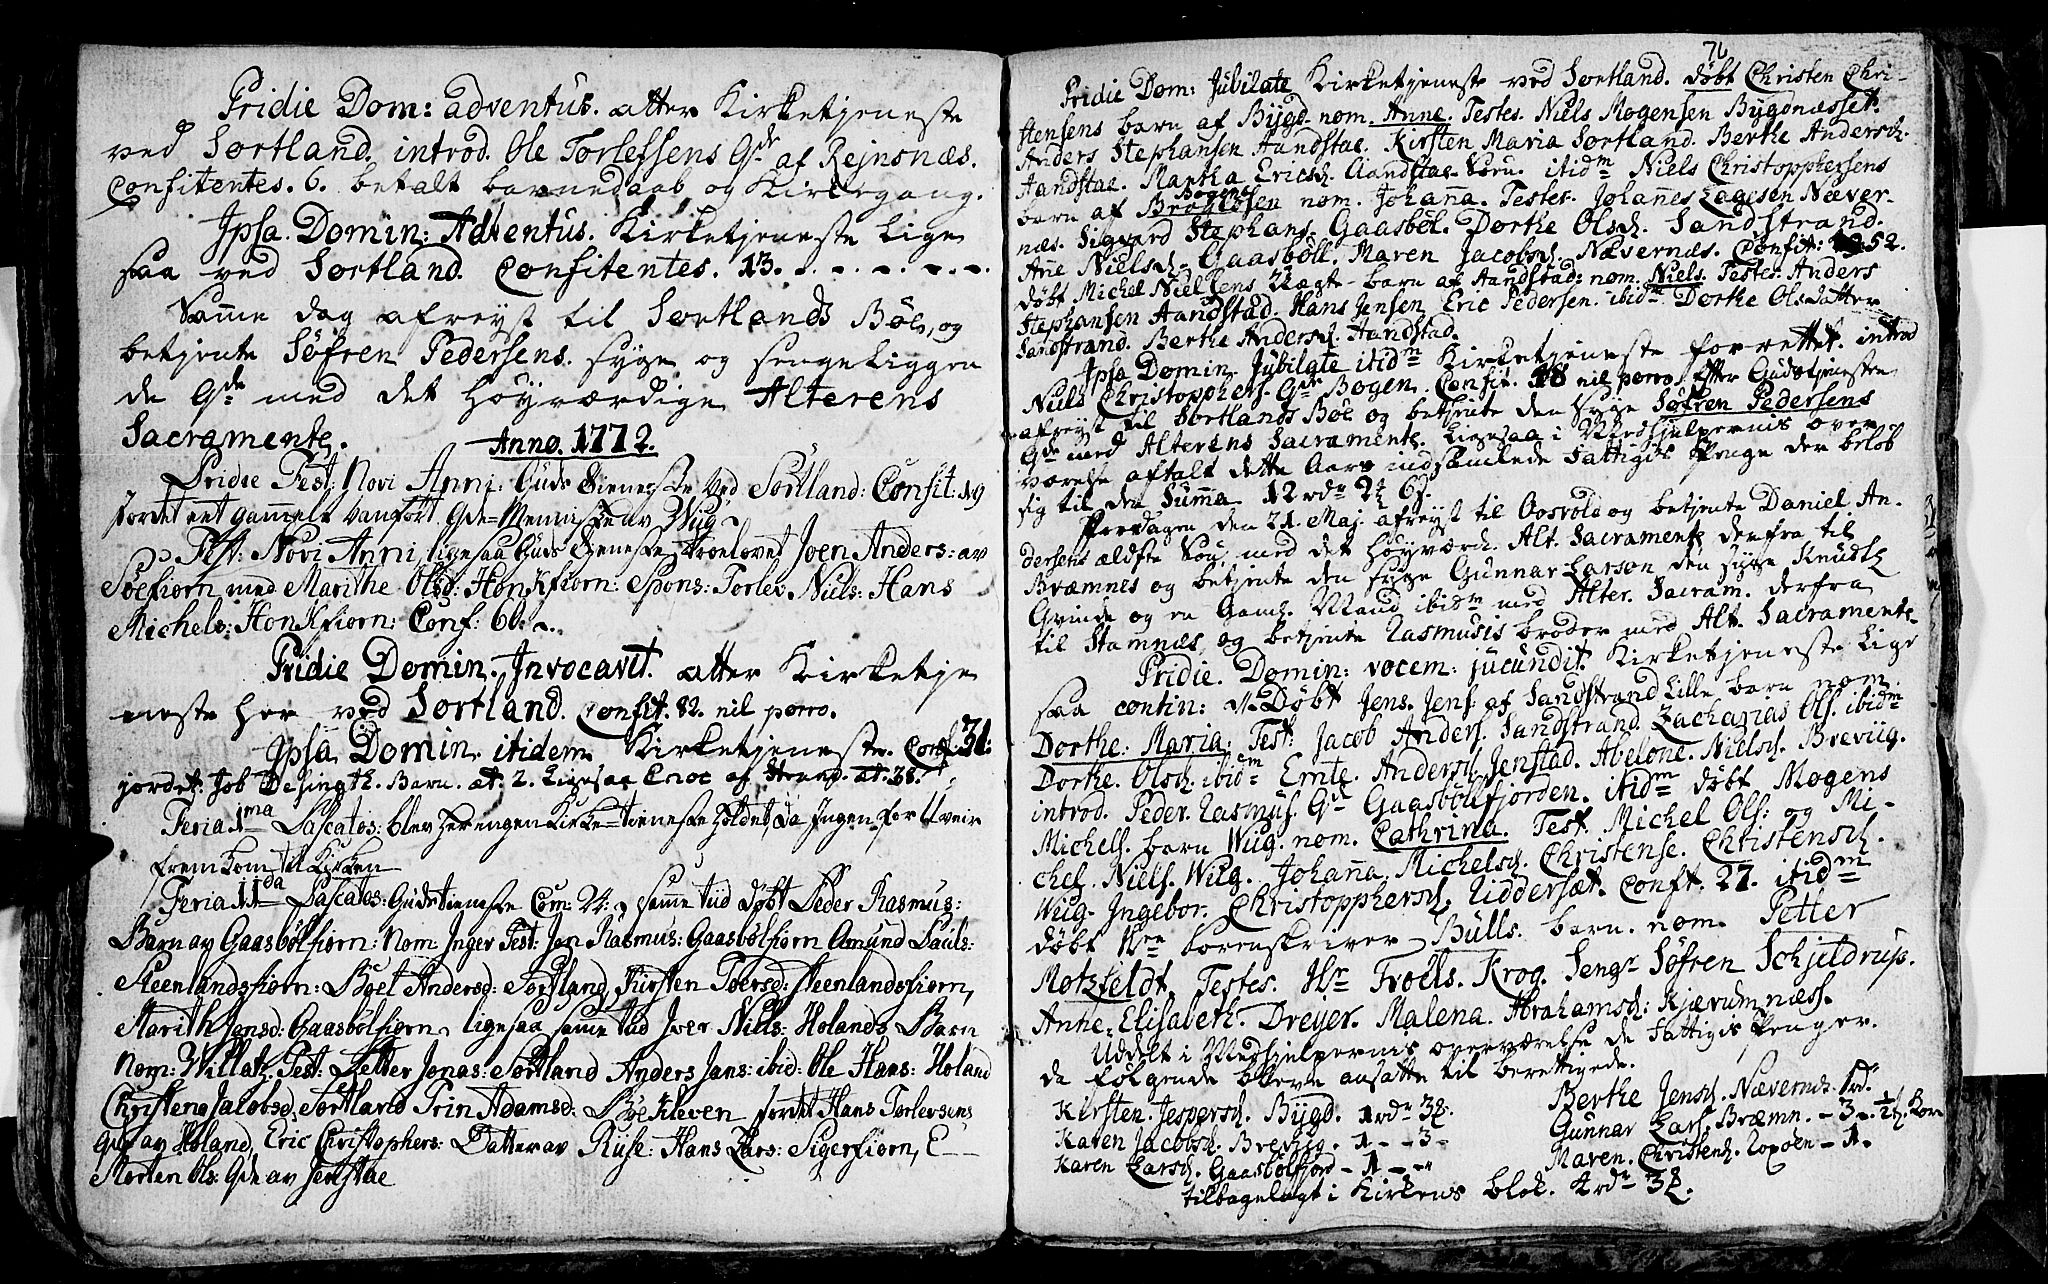 Pridie Dom: adventus. atter Kirketjeneste
ved Sortland introd. Ole Torlefsens Qde af Rejnsnæs.
Confitentes. 6. betalt barnedaab og Kirkegang.
Ipsa. Domin: Adventus. Kirketjeneste Lige
saa ved Sortland. Confitentes. 13.
Samme dag afreyst til Sortlands Böe, og
betjente Söfren Pedersens syge og sengeliggen
de Qde med det Höyværdige Alterens
Sacramente.
Anno. 1772.
Pridie Fest: Novi Anni: Guds Tieneste ved Sortland: Confit: 19
jordet et gammelt vanfört Qde=Menniske av Wiig
Fest: Novi Anni, ligesaa Guds Tieneste, troelovet Joen Anders: av
Soefiorn med Marithe Olsd: Honkfiorn: Spons: Torlev Niels: Hans
Michels: Honkfiorn: Conf: 60.
Pridie Domin. Invocavit. atter Kirketje
neste her ved Sortland. Confit. 82. nil porro.
Ipsa Domin. itidem Kirketjeneste. Conf. 31.
jordet. Job Barn. æt. 2. Ligesaa Enoc af Strand. æt. 38.
Feria 1ma Pascatos: blev her engen Kirke=tieneste holdet, da Ingen for Uveir
fremkom til Kirken
Feria IIda Pascatos: Gudstieneste Com: 24: samme tiid döbt Peder Rasmus:
Barn av Gaasbölfiorn: Nom: Inger Test: Jon Rasmus: Gaasbölfiorn Amund Pauls:
Steenlandsfiorn: Boel Andersd: Sortland, Kirsten Toersd: Steenlandsfiorn,
Marith Jensd: Gaasbölfiorn, ligesaa samme tiid Iver Niels: Holands Barn
Nom: Willatz Test: Petter Jonas: Sortland Anders Jans: ibid: Ole Hans: Holand
Christena Jacobsd Sortland Trin Adamsd: Bye Kleven jordet Hans Torlevsens
Qde av Holand, Eric Christophers: Datter av Ryse: Hans Lars: Sigerfiorn, E
Morten Ols: Qde av
76
Pridie Dom: Jubilate Kirketjeneste ved Sortland. döbt Christen Chri-
stensens barn af Bÿgd. nom. Anne. Testes. Niels Mogensen Bygdnæsset.
Anders Stephansen Aandstae. Kirsten Maria Sortland. Berthe Andersd.
Aandstae. Martha Ericsd. Aandstae itidm Niels Christopphersens
Bogen
barn af nom. Johanna. Testes. Johannes Lagesen Næver-
næs. Sigvard Stephans. Gaasböl. Dorthe Olsd. Sandstrand.
Ane Nielsd. Gaasböll. Maren Jacobsd. Nævernæs. Confit: 52.
döbt Michel Nielsens Uægte-barn af Aandstad: nom. Niels. Testes. Anders
Stephansen Aandstad. Hans Jensen Eric Pedersen. ibidm Dorthe Olsdatter
Sandstrand. Berthe Andersd. Aandstad.
Ipsa Domin. Jubilate itidm Kirketjeneste forrettet. introd
Niels Christopphers. Qde Bogen. Confit. 18 nil porro. Efter Gudstjenesten
afreyst til Sortlands Böe og betjente den syge Söfren Pedersens
Qde med Alterens Sacramente. Ligesaa i Medhjelpernis over
værelse aftalt dette Aars indsamlede Fattigis Penge der belöb
sig til den Summa 12 rdr 2 6
den 21. Maj. afreyst til Oosvold og betjente Daniel An-
dersens ældste Sön, med det Höyværd. Alt. Sacramente derfra til
Bræmnes og betjente den syge Gunnar Larson den syge
Qvinde og en Gaml. Mand ibidm med Alter. Sacram. derfra
til Stamnæs, og betjente Rasmusis broder med Alt. Sacramente.
Pridie. Domin: vocem: jucundit. Kirketjeneste Lige
saa contin: Döbt Jens. Jens. af Sandstrand Lille barn nom.
Dorthe. Maria. Test: Jacob Anders. Sandstrand. Zacharias Ols. ibidm
Dorthe. Olsd. ibidm Emte. Andersd. Jenstad. Abelone. Nielsd. Breviig.
introd. Peder. Rasmus. Qde Gaasböllfjorden. itidm döbt Mogens
Michels. barn Wiig. nom. Cathrina. Test. Michel Ols: og Mi-
chel. Niels. Wiig. Johanna, Michelsd. Christense. Christensd.
Wiig. Ingebor. Christopphersd. Riddersæt. Conft. 27. itidm
döbt Hr. Sorenskriver Bülls. barn. nom. Petter
Motzfeldt. Testes. Hr Troels. Krog. Sengr Söfren Schjeldrup.
Anne. Elisabeth. Dreyer. Malena. Abrahamsd: Kjærumnæss.
Uddelt i Medhjelpernis overværelse de Fattigis Penger.
da fölgende bleve ansatte til berettigede.
Kirsten. Jespersd. Bÿgd. 1 rdr 3
Karen Jacobsd. Breviig. 1 - - 3 -
Karen Larsd. Gaasbölfjord - 1 - -
Berthe Jensd. Nævernæs.
Gunnar Lars. Bræmn. - 3 -
Maren. Christend. - 1 -
tilbagelagt i Kirkens blok. 4 rdr 3